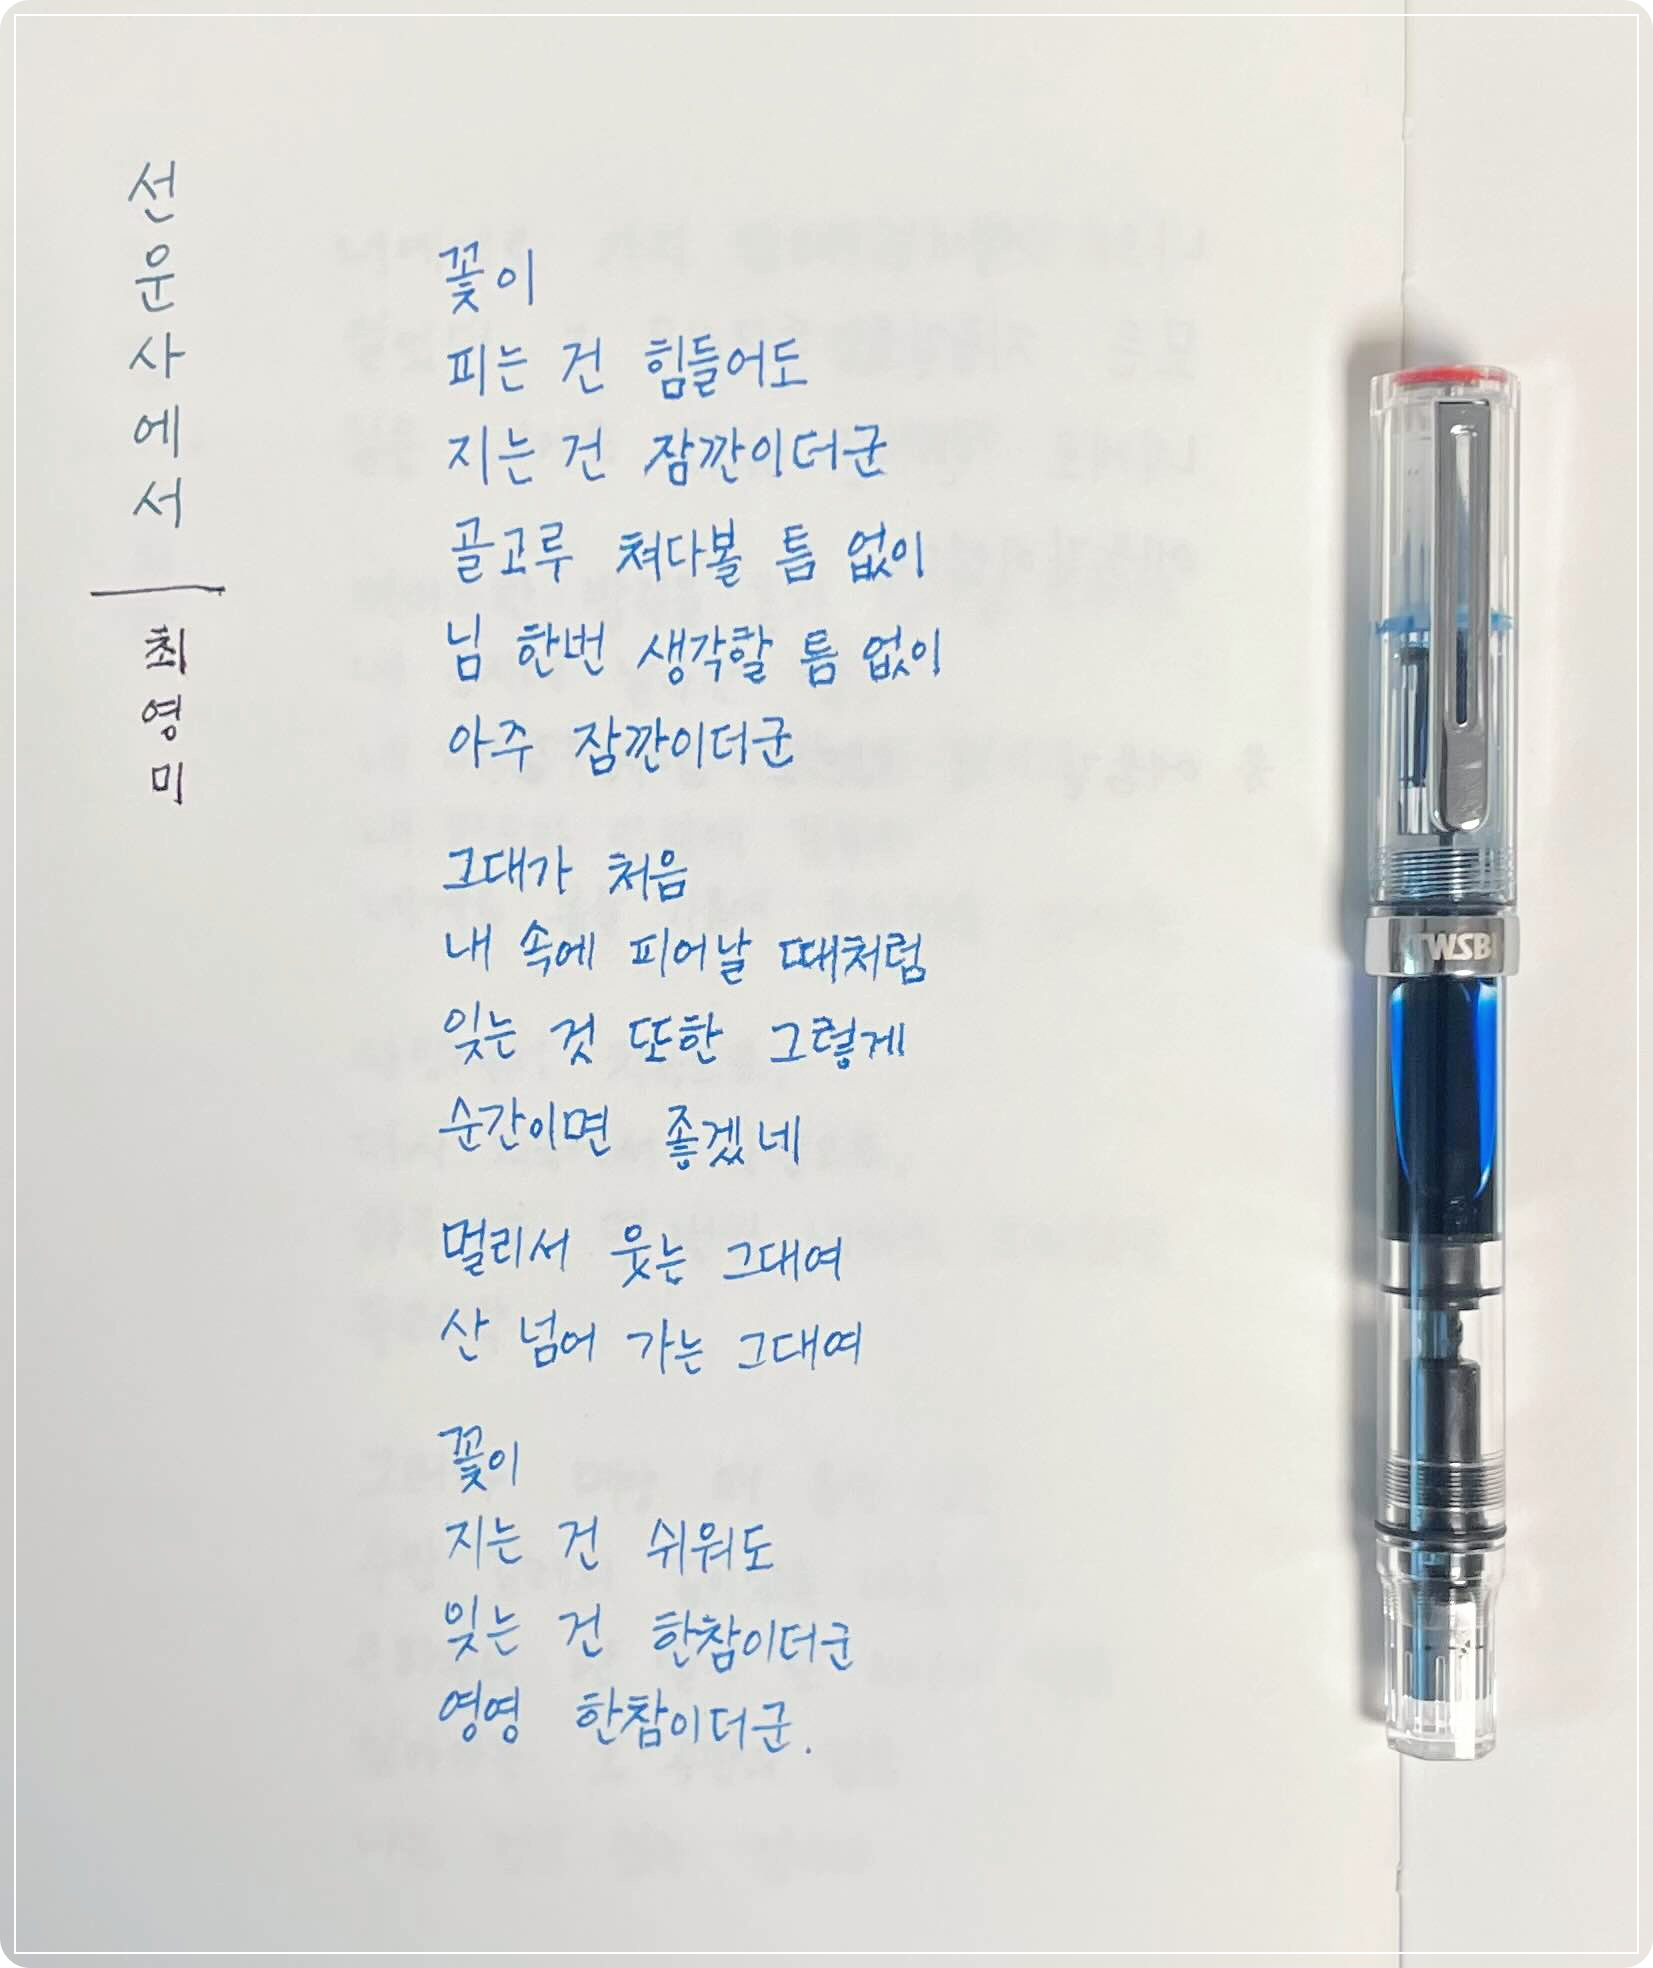 선운사에서
최영미
꽃이
피는 건 힘들어도
지는 건 잠깐이더군
골고루 쳐다볼 틈 없이
님 한번 생각할 틈 없이
아주 잠깐이더군
그대가 처음
내 속에 피어날 때처럼
잊는 것 또한 그렇게
순간이면 좋겠네
멀리서 웃는 그대여
산 넘어 가는 그대여
꽃이
지는 건 쉬워도
잊는 건 한참이더군
영영 한참이더군.
TWSBI